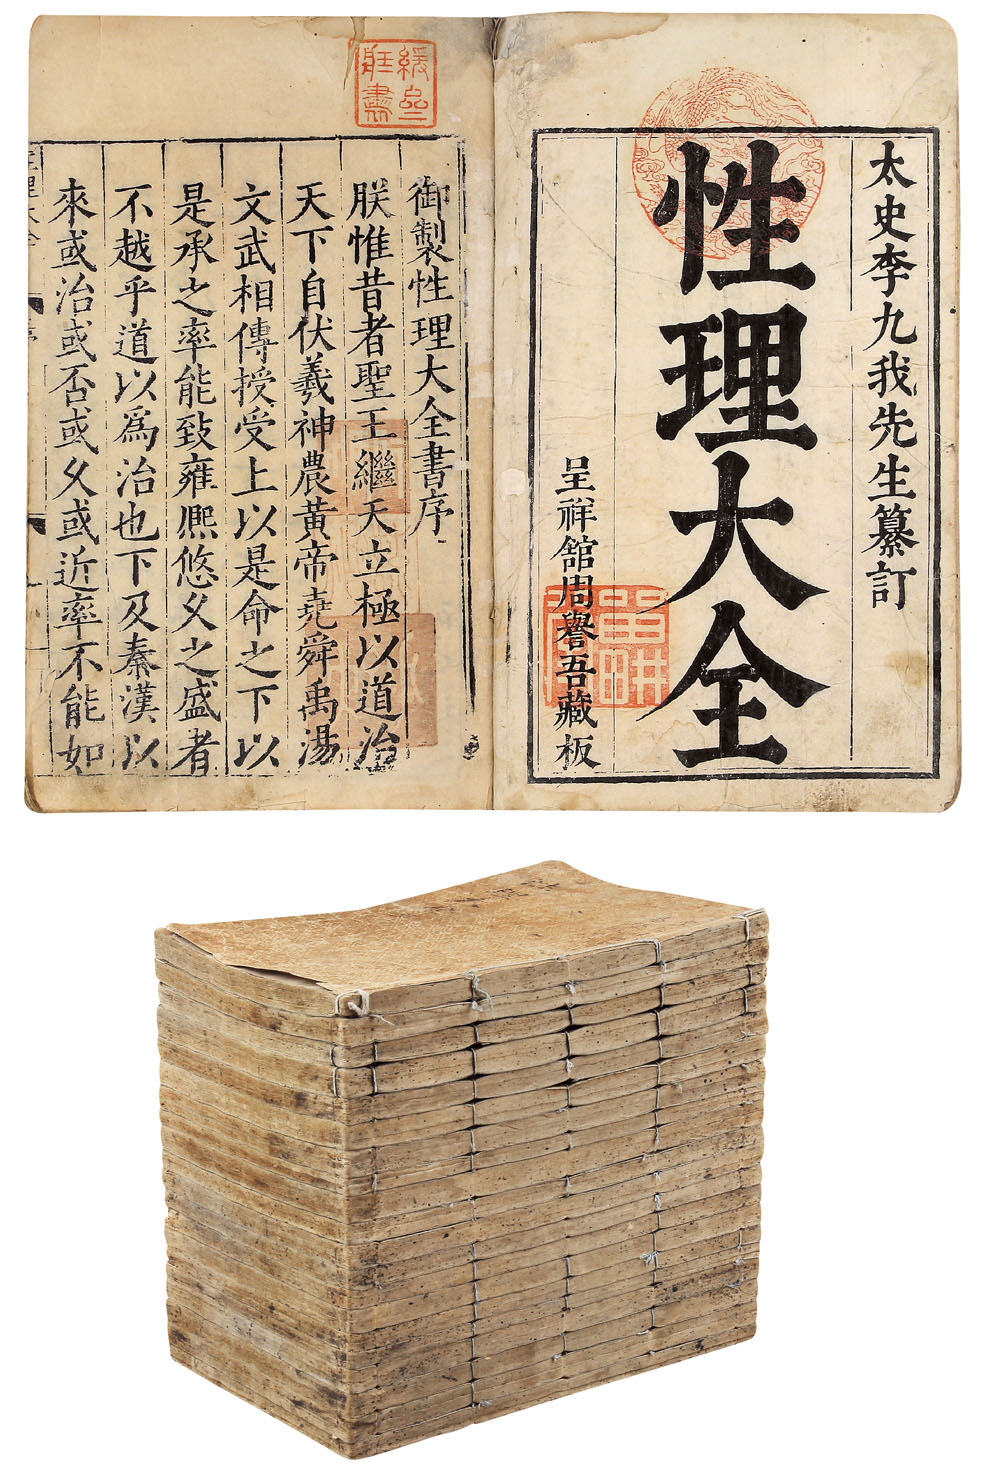 太史李九我先生纂訂
性理大全
呈祥館周譽吾藏板
御製性理大全書序
朕惟昔者聖王繼天立極以道治
天下自伏羲神農黃帝堯舜禹湯
文武相傳授受上以是命之下以
是承之率能致雍熙悠久之盛者
不越乎道以為治也下及秦漢以
來或治或否或久或近率不能如